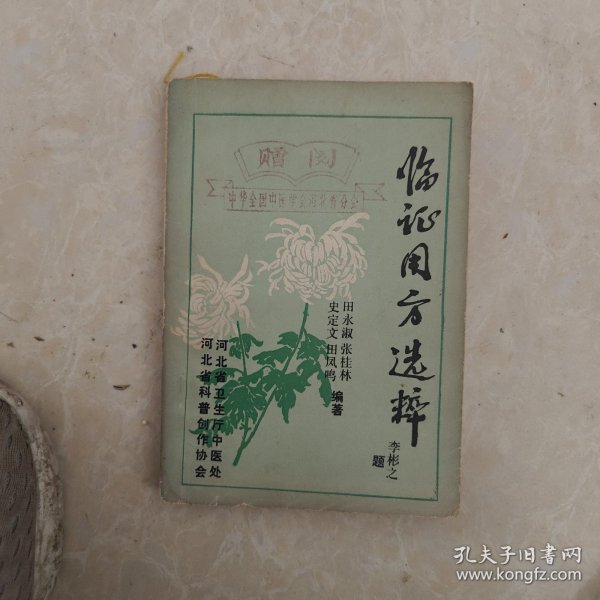 赠阅
中华全国中医学会河北省分会
临证用方选粹
李彬之
题
田永淑 张桂林
史定文 田凤鸣
编著
河北省卫生厅中医处
河北省科普创作协会
孔夫子旧书网
www.kongfz.com